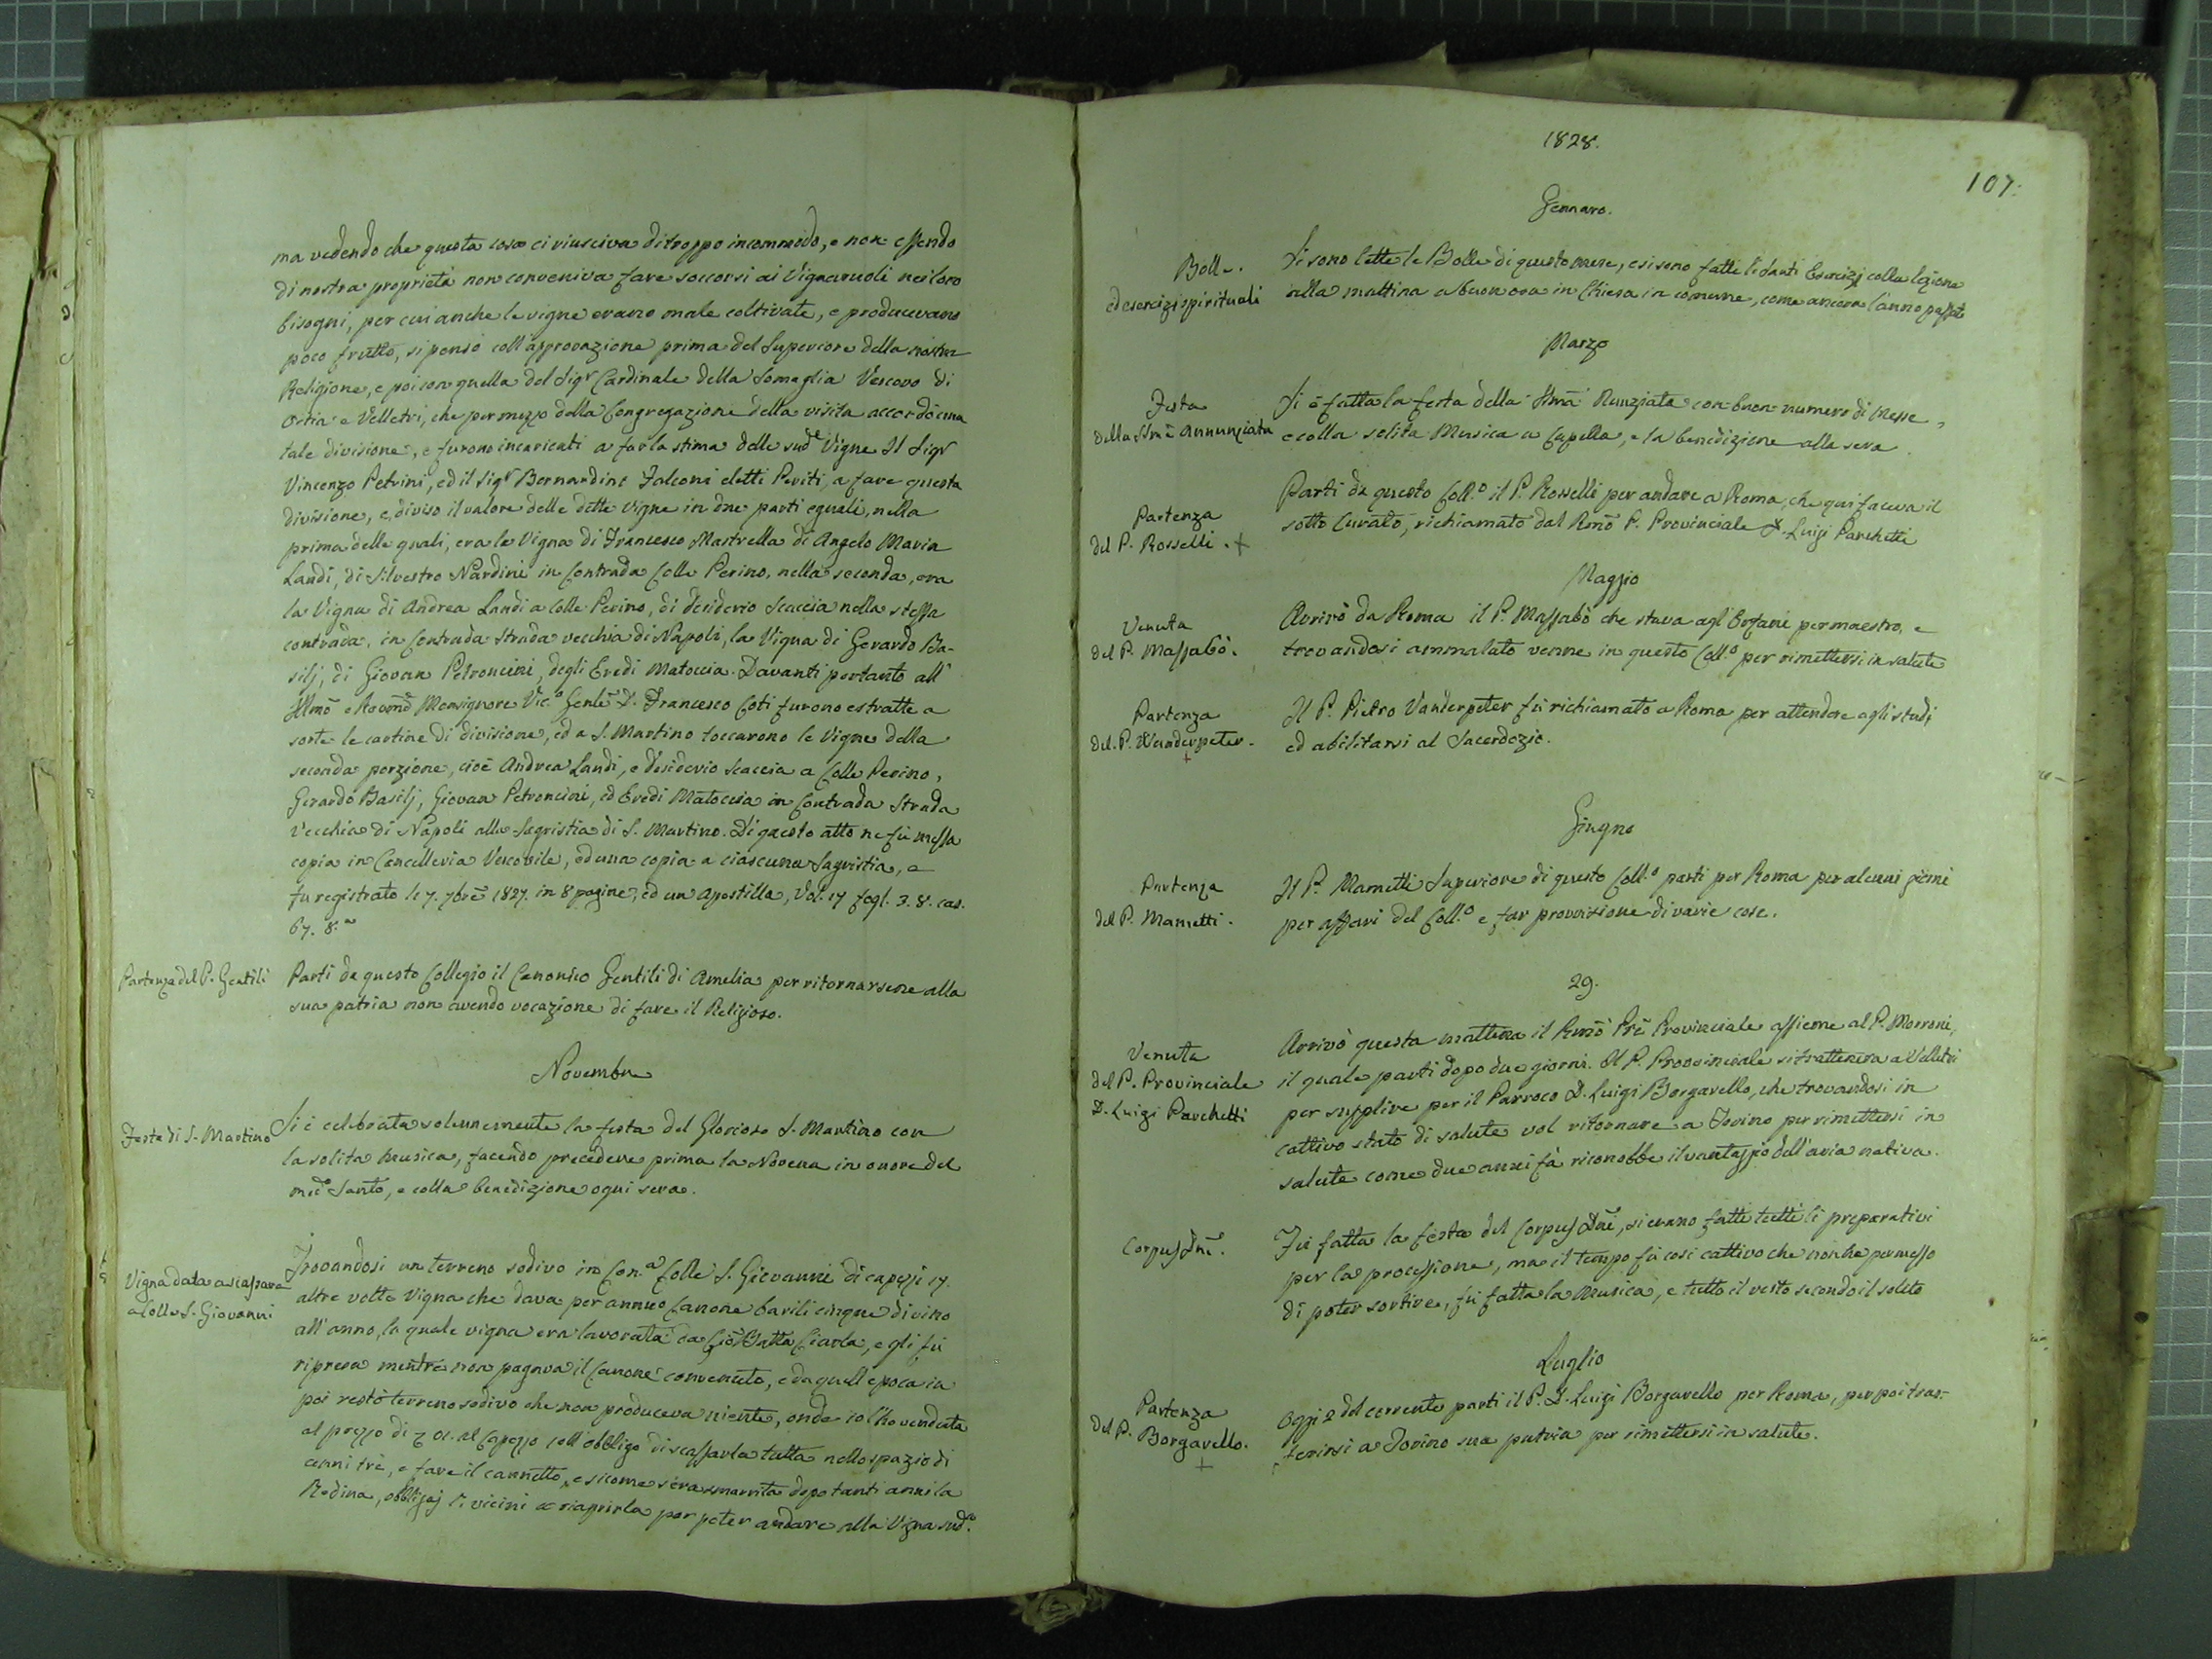 ma vedendo che questa cosa ci riusciva di troppo incommodo, e non essendo
di nostra proprietà non conveniva fare soccorsi ai Vignaruoli nei loro
bisogni, per cui anche le vigne erano male coltivate, e producevano
poco frutto, si pensò coll'approvazione prima del Superiore della nostra
Religione, e poi con quella del Sigr Cardinale della Somaglia Vescovo di
Ostia e Velletri, che per mezzo della Congregazione della visita accordò una
tale divisione, e furono incaricati a far la stima delle sude Vigne Il Sigr
Vincenzo Petrini, ed il Sigr Bernardino Falconi eletti Periti, a fare questa
divisione, e diviso il valore delle dette vigne in due parti eguali, nella
prima delle quali, era la Vigna di Francesco Mastrella di Angelo Maria
Landi, di Silvestro Nardini in Contrada Colle Perino, nella seconda, era
la Vigna di Andrea Landi a Colle Perino, di Desiderio Scaccia nella stessa
contrada, in Contrada Strada vecchia di Napoli, la Vigna di Gerardo Ba-
silj, di Giovan Petroncini, degli Eredi Matoccia. Davanti pertanto all'
Illmõ e Revmõ Monsignore Vic.o Genle D. Francesco Coti furono estratte a
sorte le cartine di divisione, ed a S. Martino toccarono le Vigne della
seconda porzione, cioè Andrea Landi, e Desiderio Scaccia a Colle Perino,
Gerardo Basilj, Giovan Petroncini, ed Eredi Matoccia in Contrada Strada
Vecchia di Napoli alla Sagristia di S. Martino. Di questo atto ne fù messa
copia in Cancelleria Vescovile, ed una copia a ciascuna Sagristia, e
fu registrato li 7. 7brẽ 1827. in 8 pagine, ed un apostilla, Vol. 17 fogl. 3. 8. cas.
67. 8.a
Partenza del P. Gentili
Partì da questo Collegio il Canonico Gentili di Amelia per ritornarsene alla
sua patria non avendo vocazione di fare il Religioso.
Novembre
Festa di S. Martino
Si è celebrata solennemente la festa del Glorioso S. Martino con
la solita musica, facendo precedere prima la Novena in onore del
medo Santo, e colla benedizione ogni sera.
Vigna data a scassare
a Colle S. Giovanni
Trovandosi un terreno sodivo in Con.a Colle S. Giovanni di capezzi 17.
altre volte Vigna che dava per annuo Canone barili cinque di vino
all'anno, la quale vigna era lavorata da Giõ Batta Ciarla, e gli fù
ripresa mentre non pagava il Canone convenuto, e da quell'epoca in
poi restò terreno sodivo che non produceva niente, onde io l'ho venduta
al prezzo di al Capezzo coll'obbligo di scassarla tutta nello spazio di
anni tre, e fare il cannetto, e sicome s'era smarrita dopo tanti anni la
Redina, obbligaj li vicini a riaprirla per poter andare alla Vigna suda.
1828.
107.
Gennaro.
Bolle.
ed esercizj spirituali
Si sono lette le Bolle di questo mese, e si sono fatti li Santi Esercizj colla lezione
alla mattina a buon ora in Chiesa in comune, come ancora l'anno passato
Marzo
Festa
della SSmã Annunziata
Si è fatta la festa della SSmã Nunziata con buon numero di Messe,
e colla solita Musica a Capella, e la benedizione alla sera.
Partenza
del P. Rosselli. +
Partì da questo Coll.o il P. Rosselli per andare a Roma, che qui faceva il
sotto Curato, richiamato dal Rmõ P. Provinciale D. Luigi Parchetti
Maggio
Venuta
del P. Massabò.
Arrivò da Roma il P. Massabò che stava agl'Orfani per maestro, e
trovandosi ammalato venne in questo Coll.o per rimettersi in salute
Partenza
del P. Wanderpeter.
+
Il P. Pietro Vanderpeter fù richiamato a Roma per attendere agli studj
ed abilitarsi al Sacerdozio.
Giugno
Partenza
del P. Mametti.
Il P. Mametti Superiore di questo Coll.o partì per Roma per alcuni giorni
per affari del Coll.o e far provvisione di varie cose.
29.
Venuta
del P. Provinciale
D. Luigi Parchetti
Arrivò questa mattina il Rmõ Prẽ Provinciale assieme al P. Morroni,
il quale partì dopo due giorni. Il P. Provinciale si tratteneva a Velletri
per supplire per il Parroco D. Luigi Borgarello, che trovandosi in
cattivo stato di salute vol ritornare a Torino per rimettersi in
salute come due anni fà riconobbe il vantaggio dell'aria nativa.
Corpus Dnĩ.
Fù fatta la festa del Corpus Dnĩ, si erano fatti tutti li preparativi
per la processione, ma il tempo fù così cattivo che non ha permesso
di poter sortire, fù fatta la Musica, e tutto il resto secondo il solito
Luglio
Partenza
del P. Borgarello.
+
Oggi 2 del corrente partì il P. D. Luigi Borgarello per Roma, per poi tras-
ferirsi a Torino sua patria per rimettersi in salute.